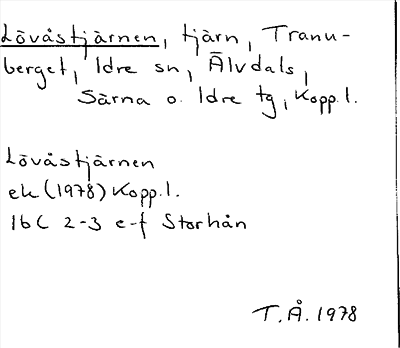 Lövåstjärnen, tjärn, Tranu-
berget, Idre sn, Älvdals,
Särna o. Idre tg, Kopp.l.
Lövåstjärnen
ek (1978) Kopp.l.
16C 2-3 e-f Storhån
T.Å. 1978